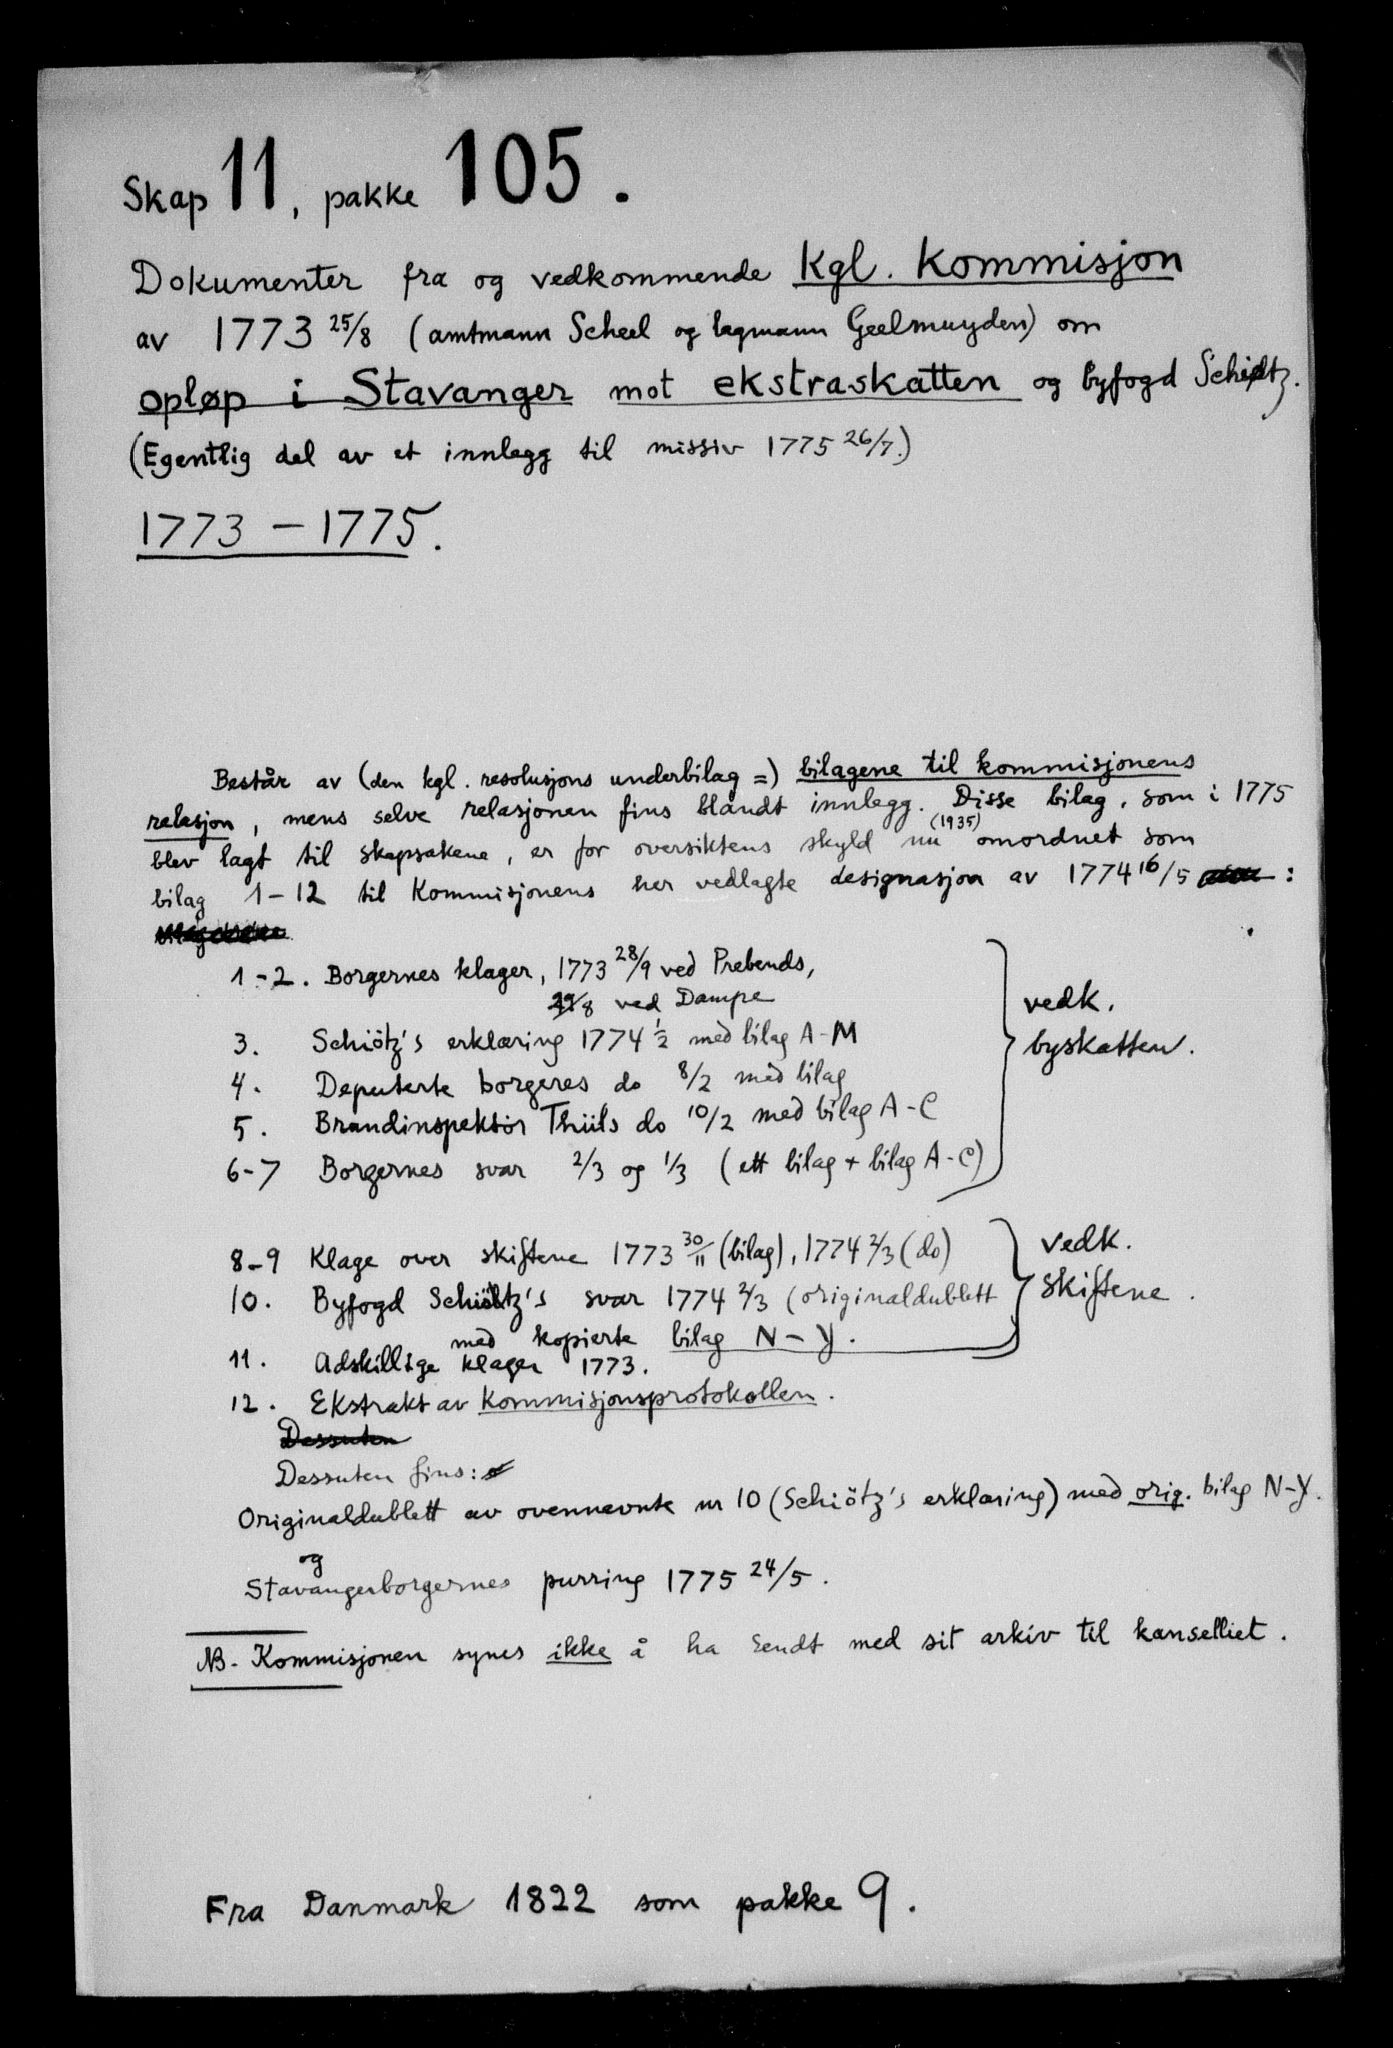 Skap 11, pakke 105.
Dokumenter fra og vedkommende Kgl. Kommisjon
av 1773 25/8 (amtmann Scheel og lagmann Geelmuyden) om
opløp i Stavanger mot ekstraskatten og byfogd Schiøtz.
(Egentlig del av et innlegg til missiv 1775 26/7.)
1773 – 1775.
Består av (den kgl. resolusjons underbilag =) bilagene til kommisjonens
relasjon, mens selve relasjonen fins blandt innlegg. Disse bilag, som i 1775
blev lagt til skapsakene, er for oversiktens skyld nu (1935) omordnet som
bilag 1–12 til Kommisjonens her vedlagte designasjon av 1774 16/5 :
1–2. Borgernes klager, 1773 28/9 ved Prebends,
29/8 ved Dampe
3. Schiötz's erklæring 1774 1/2 med bilag A–M
4. Deputerte borgeres do 8/2 med bilag
5. Brandinspektør Thiils do 10/2 med bilag A–C
6–7 Borgernes svar 2/3 og 1/3 (ett bilag + bilag A–C)
vedk.
byskatten.
8–9 Klage over skiftene 1773 30/11 (bilag), 1774 2/3 (do)
10. Byfogd Schiötz's svar 1774 2/3 (originaldublett
med kopierte bilag N–Y.
vedk.
skiftene.
11. Adskillige klager 1773.
12. Ekstrakt av Kommisjonsprotokollen.
Dessuten
Dessuten fins:
Originaldublett av ovennevnte nr 10 (Schiötz's erklæring) med orig. bilag N–Y.
og
Stavangerborgernes purring 1775 24/5.
NB. Kommisjonen synes ikke å ha sendt med sit arkiv til kanselliet.
Fra Danmark 1822 som pakke 9.